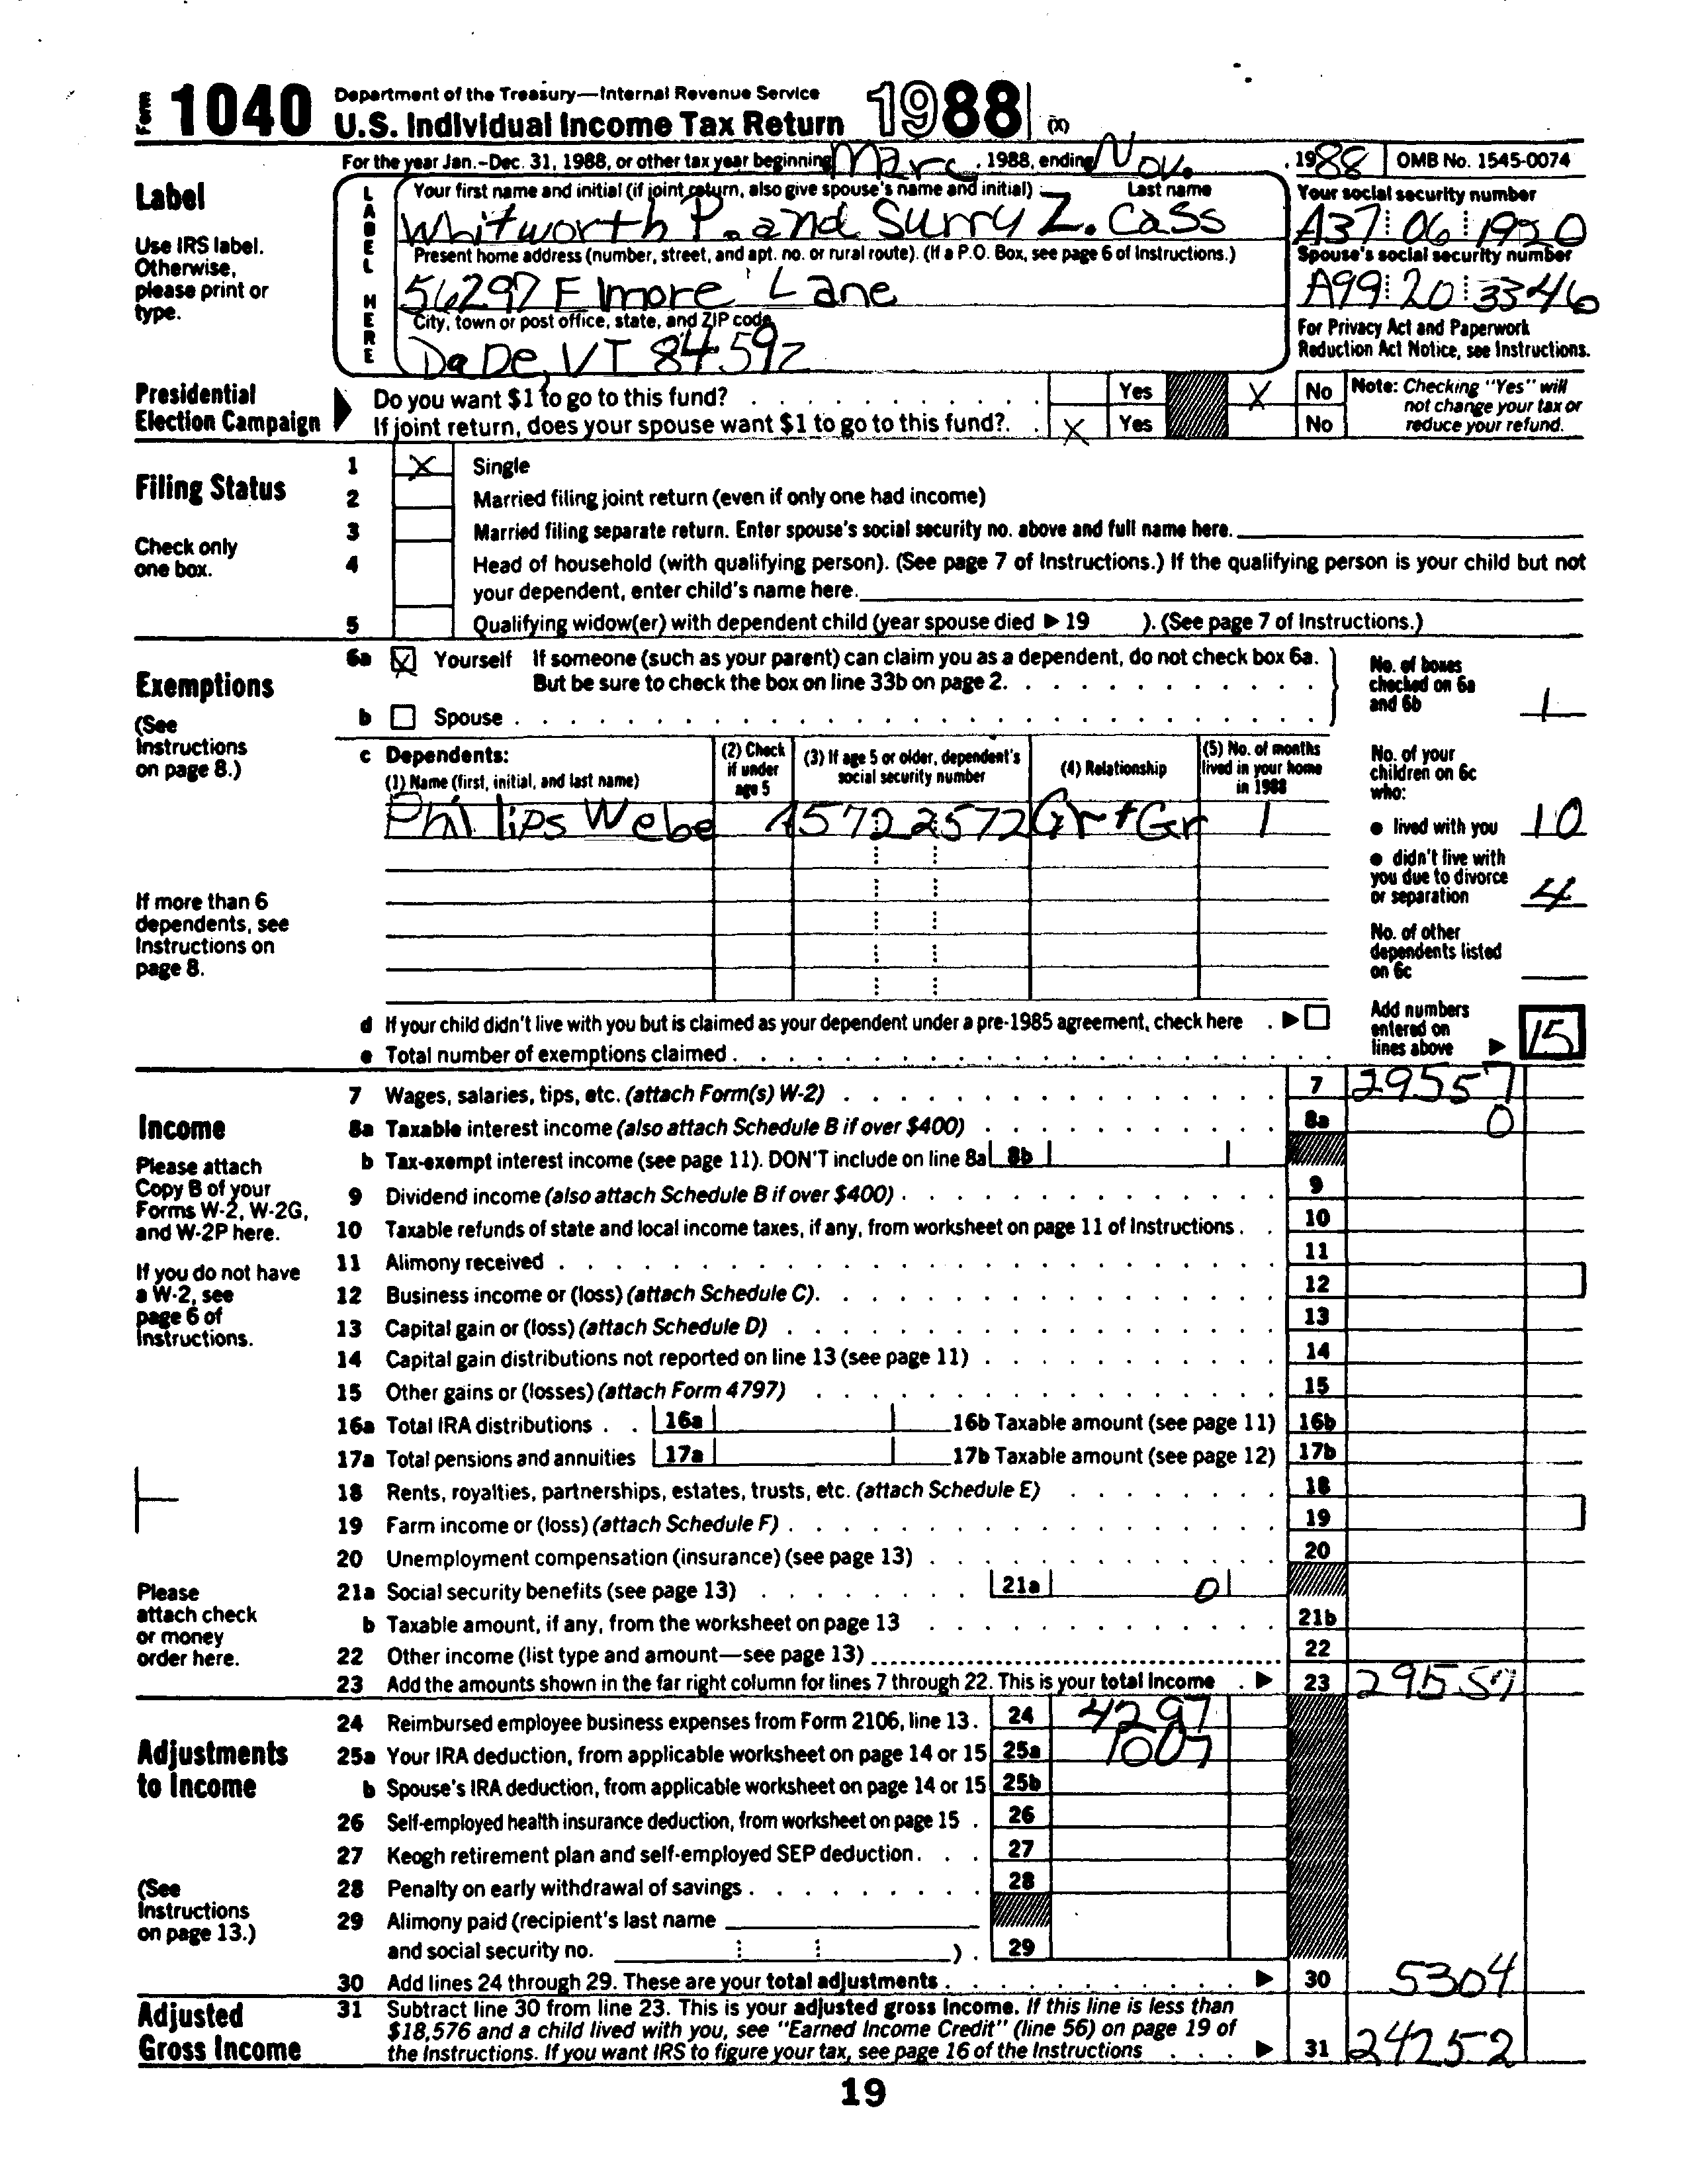 Form 1040 Department of the Treasury—Internal Revenue Service
U.S. Individual Income Tax Return 1988 (X)
For the year Jan.-Dec. 31, 1988, or other tax year beginning Marc , 1988, ending Nov. , 1988 OMB No. 1545-0074
Label
Use IRS label.
Otherwise,
please print or
type.
LABEL HERE
Your first name and initial (if joint return, also give spouse's name and initial) Last name
Whitworth P. and Surry Z. Cass
Your social security number
A37 06 1920
Present home address (number, street, and apt. no. or rural route). (If a P.O. Box, see page 6 of Instructions.)
56297 Elmore Lane
Spouse's social security number
A99 20 3346
City, town or post office, state, and ZIP code
DaDe, VT 84592
For Privacy Act and Paperwork
Reduction Act Notice, see Instructions.
Presidential
Election Campaign
Do you want $1 to go to this fund? Yes X No
If joint return, does your spouse want $1 to go to this fund? X Yes No
Note: Checking "Yes" will
not change your tax or
reduce your refund.
Filing Status
Check only
one box.
1 X Single
2 Married filing joint return (even if only one had income)
3 Married filing separate return. Enter spouse's social security no. above and full name here.
4 Head of household (with qualifying person). (See page 7 of Instructions.) If the qualifying person is your child but not
your dependent, enter child's name here.
5 Qualifying widow(er) with dependent child (year spouse died ▶ 19 ). (See page 7 of Instructions.)
Exemptions
(See
Instructions
on page 8.)
6a X Yourself If someone (such as your parent) can claim you as a dependent, do not check box 6a.
But be sure to check the box on line 33b on page 2.
b Spouse
No. of boxes
checked on 6a
and 6b 1
c Dependents:
(1) Name (first, initial, and last name)
(2) Check
if under
age 5
(3) If age 5 or older, dependent's
social security number
(4) Relationship
(5) No. of months
lived in your home
in 1988
Phillips Webe 1572 2572 Gr+Gr 1
No. of your
children on 6c
who:
● lived with you 10
● didn't live with
you due to divorce
or separation 4
No. of other
dependents listed
on 6c
If more than 6
dependents, see
Instructions on
page 8.
d If your child didn't live with you but is claimed as your dependent under a pre-1985 agreement, check here ▶
e Total number of exemptions claimed
Add numbers
entered on
lines above ▶ 15
Income
Please attach
Copy B of your
Forms W-2, W-2G,
and W-2P here.
If you do not have
a W-2, see
page 6 of
Instructions.
Please
attach check
or money
order here.
7 Wages, salaries, tips, etc. (attach Form(s) W-2) 7 29557
8a Taxable interest income (also attach Schedule B if over $400) 8a 0
b Tax-exempt interest income (see page 11). DON'T include on line 8a 8b
9 Dividend income (also attach Schedule B if over $400) 9
10 Taxable refunds of state and local income taxes, if any, from worksheet on page 11 of Instructions 10
11 Alimony received 11
12 Business income or (loss) (attach Schedule C) 12
13 Capital gain or (loss) (attach Schedule D) 13
14 Capital gain distributions not reported on line 13 (see page 11) 14
15 Other gains or (losses) (attach Form 4797) 15
16a Total IRA distributions 16a 16b Taxable amount (see page 11) 16b
17a Total pensions and annuities 17a 17b Taxable amount (see page 12) 17b
18 Rents, royalties, partnerships, estates, trusts, etc. (attach Schedule E) 18
19 Farm income or (loss) (attach Schedule F) 19
20 Unemployment compensation (insurance) (see page 13) 20
21a Social security benefits (see page 13) 21a 0
b Taxable amount, if any, from the worksheet on page 13 21b
22 Other income (list type and amount—see page 13) 22
23 Add the amounts shown in the far right column for lines 7 through 22. This is your total income ▶ 23 29557
Adjustments
to Income
(See
Instructions
on page 13.)
24 Reimbursed employee business expenses from Form 2106, line 13. 24 4297
25a Your IRA deduction, from applicable worksheet on page 14 or 15 25a 1007
b Spouse's IRA deduction, from applicable worksheet on page 14 or 15 25b
26 Self-employed health insurance deduction, from worksheet on page 15 26
27 Keogh retirement plan and self-employed SEP deduction 27
28 Penalty on early withdrawal of savings 28
29 Alimony paid (recipient's last name
and social security no. ) 29
30 Add lines 24 through 29. These are your total adjustments ▶ 30 5304
Adjusted
Gross Income
31 Subtract line 30 from line 23. This is your adjusted gross income. If this line is less than
$18,576 and a child lived with you, see "Earned Income Credit" (line 56) on page 19 of
the Instructions. If you want IRS to figure your tax, see page 16 of the Instructions ▶ 31 24252
19